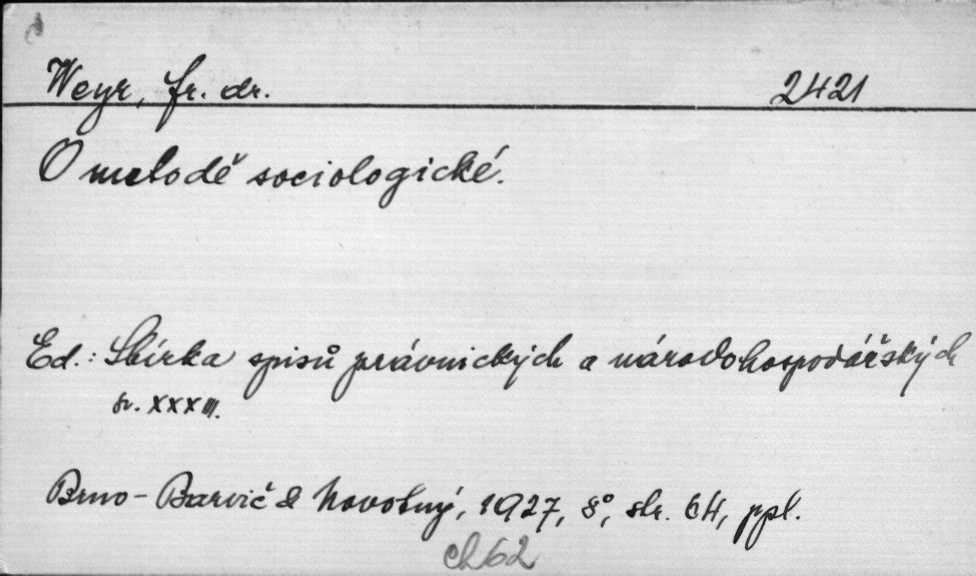 Weyr, fr. dr. 2421
O metodě sociologické.
Ed.: Sbírka spisů právnických a národohospodářských
sv. XXXIII.
Brno - Barvič & Novotný, 1927, 8°, str. 64, ppl.
ch62